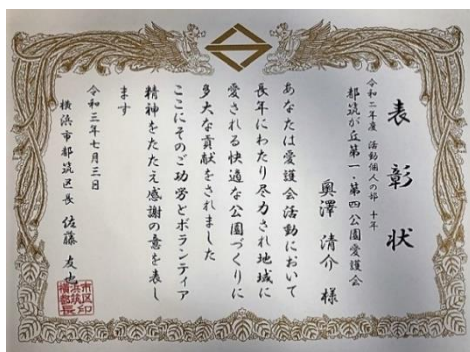 表彰状
令和二年度 活動個人の部 十年
都筑が丘第一・第四公園愛護会
奥澤 清介 様
あなたは愛護会活動において
長年にわたり尽力され地域に
愛される快適な公園づくりに
多大な貢献をされました
ここにそのご功労とボランティア
精神をたたえ感謝の意を表し
ます
令和三年七月三日
横浜市都筑区長 佐藤 友也